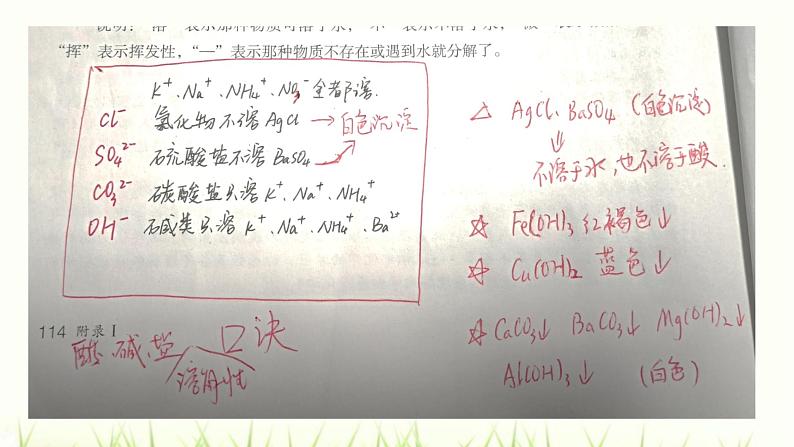 “挥”表示挥发性，“—”表示那种物质不存在或遇到水就分解了。
K⁺、Na⁺、NH₄⁺、NO₃⁻全都溶.
Cl⁻ 氯化物不溶AgCl → 白色沉淀
SO₄²⁻ 硫酸盐不溶BaSO₄
CO₃²⁻ 碳酸盐只溶K⁺、Na⁺、NH₄⁺
OH⁻ 碱类只溶K⁺、Na⁺、NH₄⁺、Ba²⁺
△ AgCl、BaSO₄ (白色沉淀)
⇓
不溶于水，也不溶于酸.
☆ Fe(OH)₃ 红褐色↓
☆ Cu(OH)₂ 蓝色↓
☆ CaCO₃↓ BaCO₃↓ Mg(OH)₂↓
Al(OH)₃↓ (白色)
114 附录Ⅰ
酸、碱、盐 口诀
溶解性